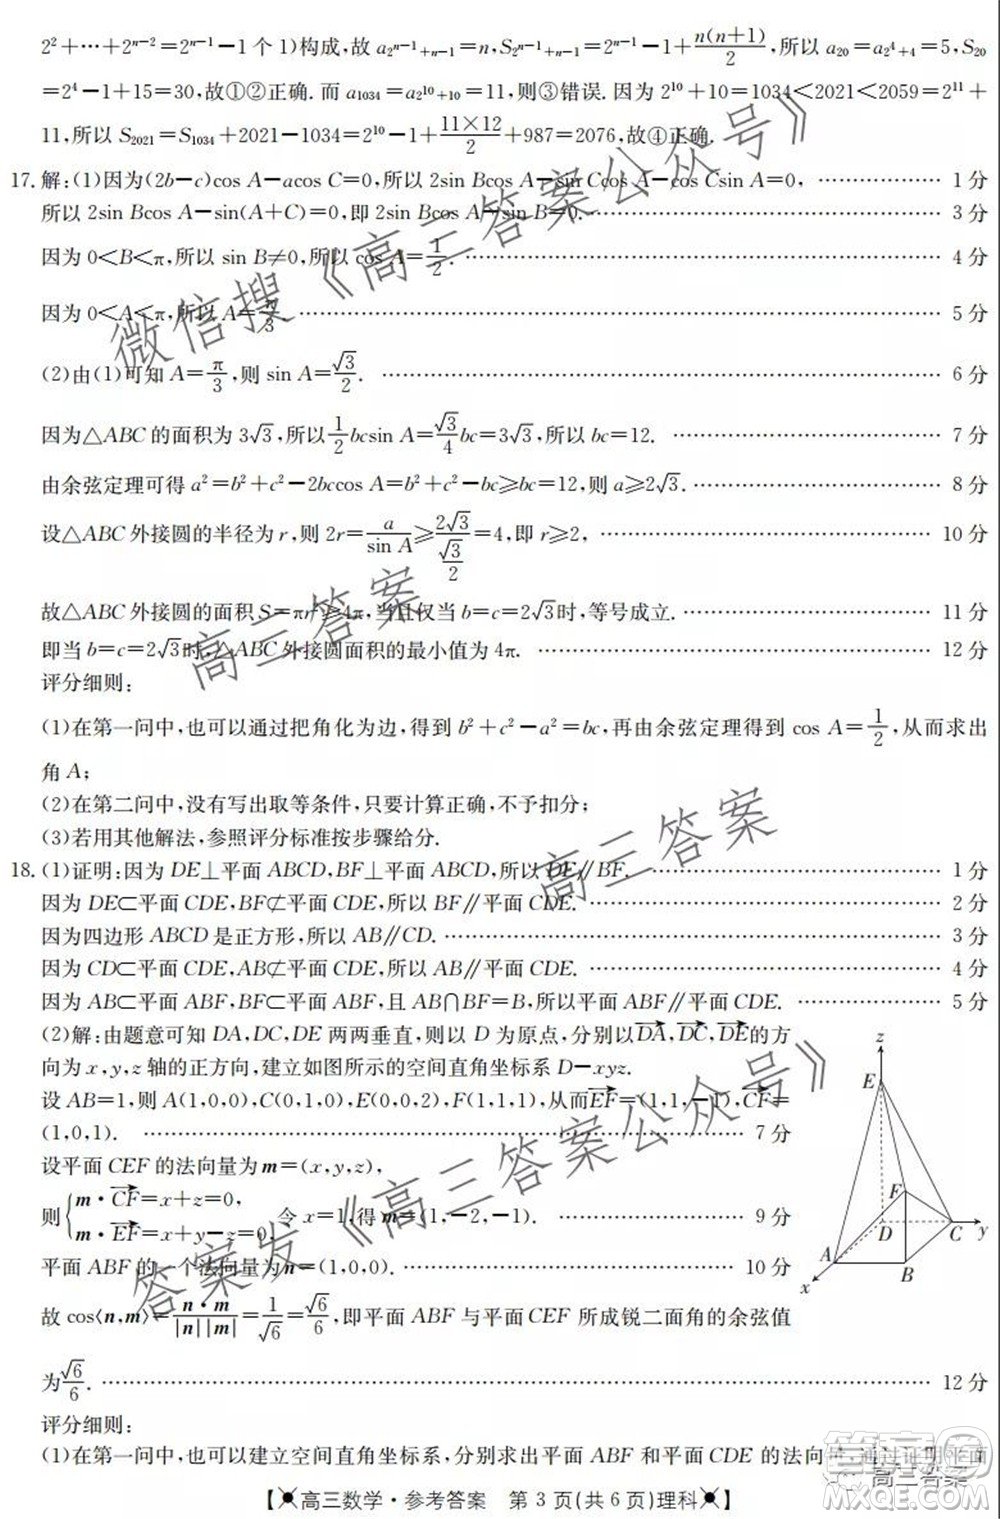 2²+…+2ⁿ⁻²=2ⁿ⁻¹-1个1)构成,故a_{2^{n-1}+n-1}=n,S_{2^{n-1}+n-1}=2ⁿ⁻¹-1+n(n+1)/2,所以a₂₀=a_{2^4+4}=5,S₂₀
=2⁴-1+15=30,故①②正确.而a₁₀₃₄=a_{2^{10}+10}=11,则③错误.因为2¹⁰+10=1034<2021<2059=2¹¹+
11,所以S₂₀₂₁=S₁₀₃₄+2021-1034=2¹⁰-1+(11×12)/2+987=2076,故④正确.
17.解:(1)因为(2b-c)cos A-acos C=0,所以2sin Bcos A-sin Ccos A-cos Csin A=0, ………… 1分
所以2sin Bcos A-sin(A+C)=0,即2sin Bcos A-sin B=0. ………… 3分
因为0<B<π,所以sin B≠0,所以cos A=1/2. ………… 4分
因为0<A<π,所以A=π/3. ………… 5分
(2)由(1)可知A=π/3,则sin A=√3/2. ………… 6分
因为△ABC的面积为3√3,所以1/2bcsin A=√3/4bc=3√3,所以bc=12. ………… 7分
由余弦定理可得a²=b²+c²-2bccos A=b²+c²-bc≥bc=12,则a≥2√3. ………… 8分
设△ABC外接圆的半径为r,则2r=a/sin A≥2√3/(√3/2)=4,即r≥2, ………… 10分
故△ABC外接圆的面积S=πr²≥4π,当且仅当b=c=2√3时,等号成立. ………… 11分
即当b=c=2√3时,△ABC外接圆面积的最小值为4π. ………… 12分
评分细则:
(1)在第一问中,也可以通过把角化为边,得到b²+c²-a²=bc,再由余弦定理得到cos A=1/2,从而求出
角A;
(2)在第二问中,没有写出取等条件,只要计算正确,不予扣分;
(3)若用其他解法,参照评分标准按步骤给分.
18.(1)证明:因为DE⊥平面ABCD,BF⊥平面ABCD,所以DE∥BF. ………… 1分
因为DE⊂平面CDE,BF⊄平面CDE,所以BF∥平面CDE. ………… 2分
因为四边形ABCD是正方形,所以AB∥CD. ………… 3分
因为CD⊂平面CDE,AB⊄平面CDE,所以AB∥平面CDE. ………… 4分
因为AB⊂平面ABF,BF⊂平面ABF,且AB∩BF=B,所以平面ABF∥平面CDE. ………… 5分
(2)解:由题意可知DA,DC,DE两两垂直,则以D为原点,分别以DA→,DC→,DE→的方
向为x,y,z轴的正方向,建立如图所示的空间直角坐标系D-xyz.
设AB=1,则A(1,0,0),C(0,1,0),E(0,0,2),F(1,1,1),从而EF→=(1,1,-1),CF→=
(1,0,1). ………… 7分
设平面CEF的法向量为m=(x,y,z),
则{m·CF→=x+z=0,
m·EF→=x+y-z=0, 令x=1,得m=(1,-2,-1). ………… 9分
平面ABF的一个法向量为n=(1,0,0). ………… 10分
故cos⟨n,m⟩=n·m/|n||m|=1/√6=√6/6,即平面ABF与平面CEF所成锐二面角的余弦值
为√6/6. ………… 12分
z
E
F
D
C
y
A
B
x
评分细则:
(1)在第一问中,也可以建立空间直角坐标系,分别求出平面ABF和平面CDE的法向量,通过证明平面
【高三数学·参考答案 第3页(共6页)理科】
微信搜《高三答案公众号》
高三答案
高三答案
答案发《高三答案公众号》
高三答案